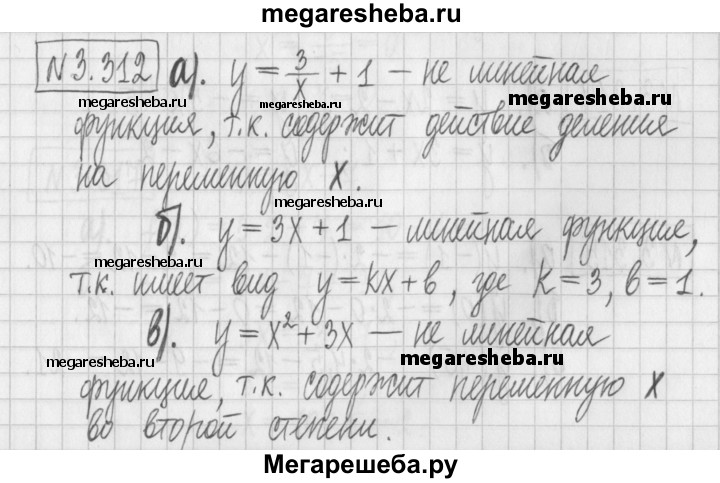 megaresheba.ru
№3.312 а). y = 3/x + 1 – не линейная
megaresheba.ru megaresheba.ru megaresheba.ru
функция, т.к. содержит действие деления
на переменную x.
megaresheba.ru
б). y = 3x + 1 – линейная функция,
megaresheba.ru
т.к. имеет вид y = kx + b, где k = 3, b = 1.
в). y = x² + 3x – не линейная
megaresheba.ru megaresheba.ru
функция, т.к. содержит переменную x
во второй степени.
Мегарешеба.ру